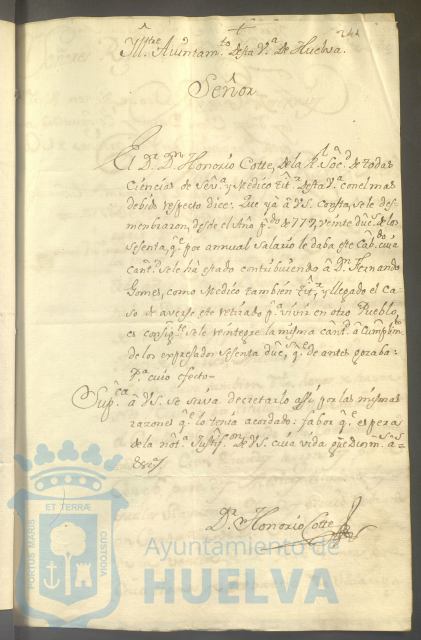 +
244
Illtre Aiuntamto desta Va de Huelva.
Señor
El Dr Dn Honorio Cotte, de la Rl Socd de todas
Ciencias de Seva y Medico titr desta Va con el mas
debido respecto dice: Que yà à V.S. consta, se le des-
membraron, desde el Año pdo de 779, veinte ducs de los
sesenta, qe por annual salario le daba este Cabdo cuia
cantd se le hà estado contribuiendo à Dn Fernando
Gomes, como Medico tambien titr, y llegado el ca
so de averse este retirado pa vivir en otro Pueblo,
es consigte se le reintegre la misma cantd à cumplimto
de los expresados sesenta ducs, qe de antes gozaba:
Pa cuio efecto-
Supca à V.S. se sirva decretarlo assi, por las mismas
razones qe lo tenia acordado: fabor qe espera
de la nota Justifon de V.S. cuia vida gue Dios ms as
Dr Honorio Cotte
ET TERRÆ
PORTUS MARIS
CUSTODIA
Ayuntamiento de
HUELVA